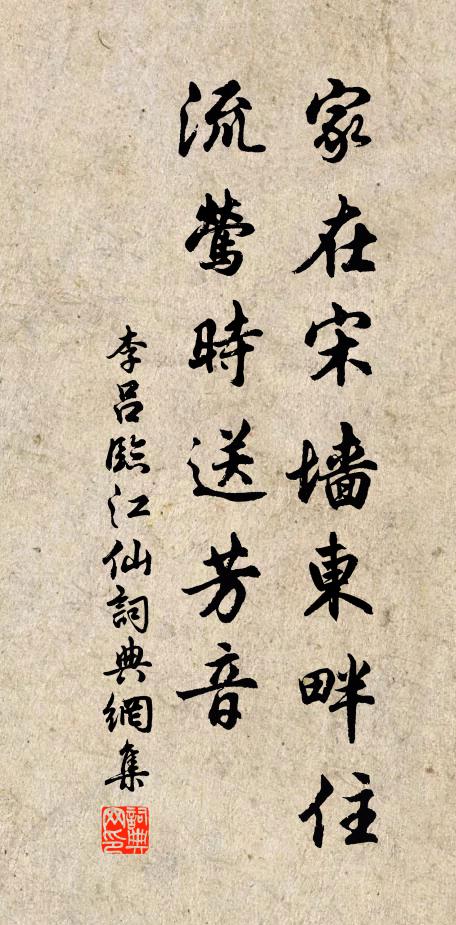 家在宋墻東畔住
流鶯時送芳音
李吕臨江仙詞典網集
詞典网印